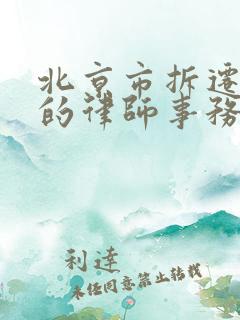 北京市拆迁
的律师事务
利达
未经同意禁止转载